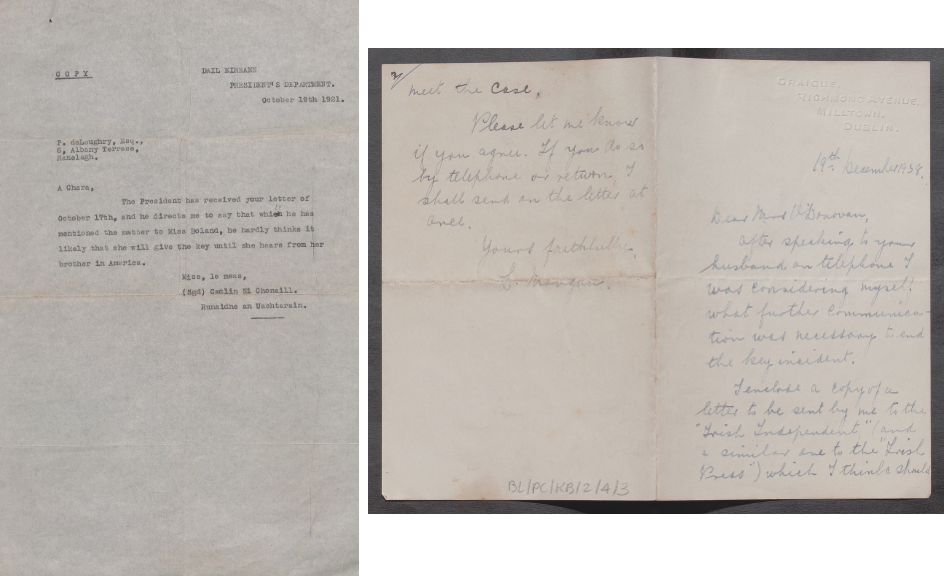 COPY
DAIL EIREANN
PRESIDENT'S DEPARTMENT.
October 19th 1921.
P. deLoughry, Esq.,
6, Albany Terrace,
Ranelagh.
A Chara,
The President has received your letter of
October 17th, and he directs me to say that while he has
mentioned the matter to Miss Boland, he hardly thinks it
likely that she will give the key until she hears from her
brother in America.
Mise, le meas,
(Sgd) Caulin Ni Chonaill.
Runaidhe an Uachtarain.
2/
meet the case.
Please let me know
if you agree. If you do so
by telephone or return, I
shall send on the letter at
once.
Yours faithfully,
L. Mangan.
BL/PC/KB/2/4/3
GRAIGUE,
RICHMOND AVENUE,
MILLTOWN,
DUBLIN.
19th December 1938.
Dear Mrs O'Donovan,
After speaking to your
husband on telephone I
was considering myself
what further communica-
tion was necessary to end
the key incident.
I enclose a copy of a
letter to be sent by me to the
"Irish Independent," (and
a similar one to the "Irish
Press") which I think should